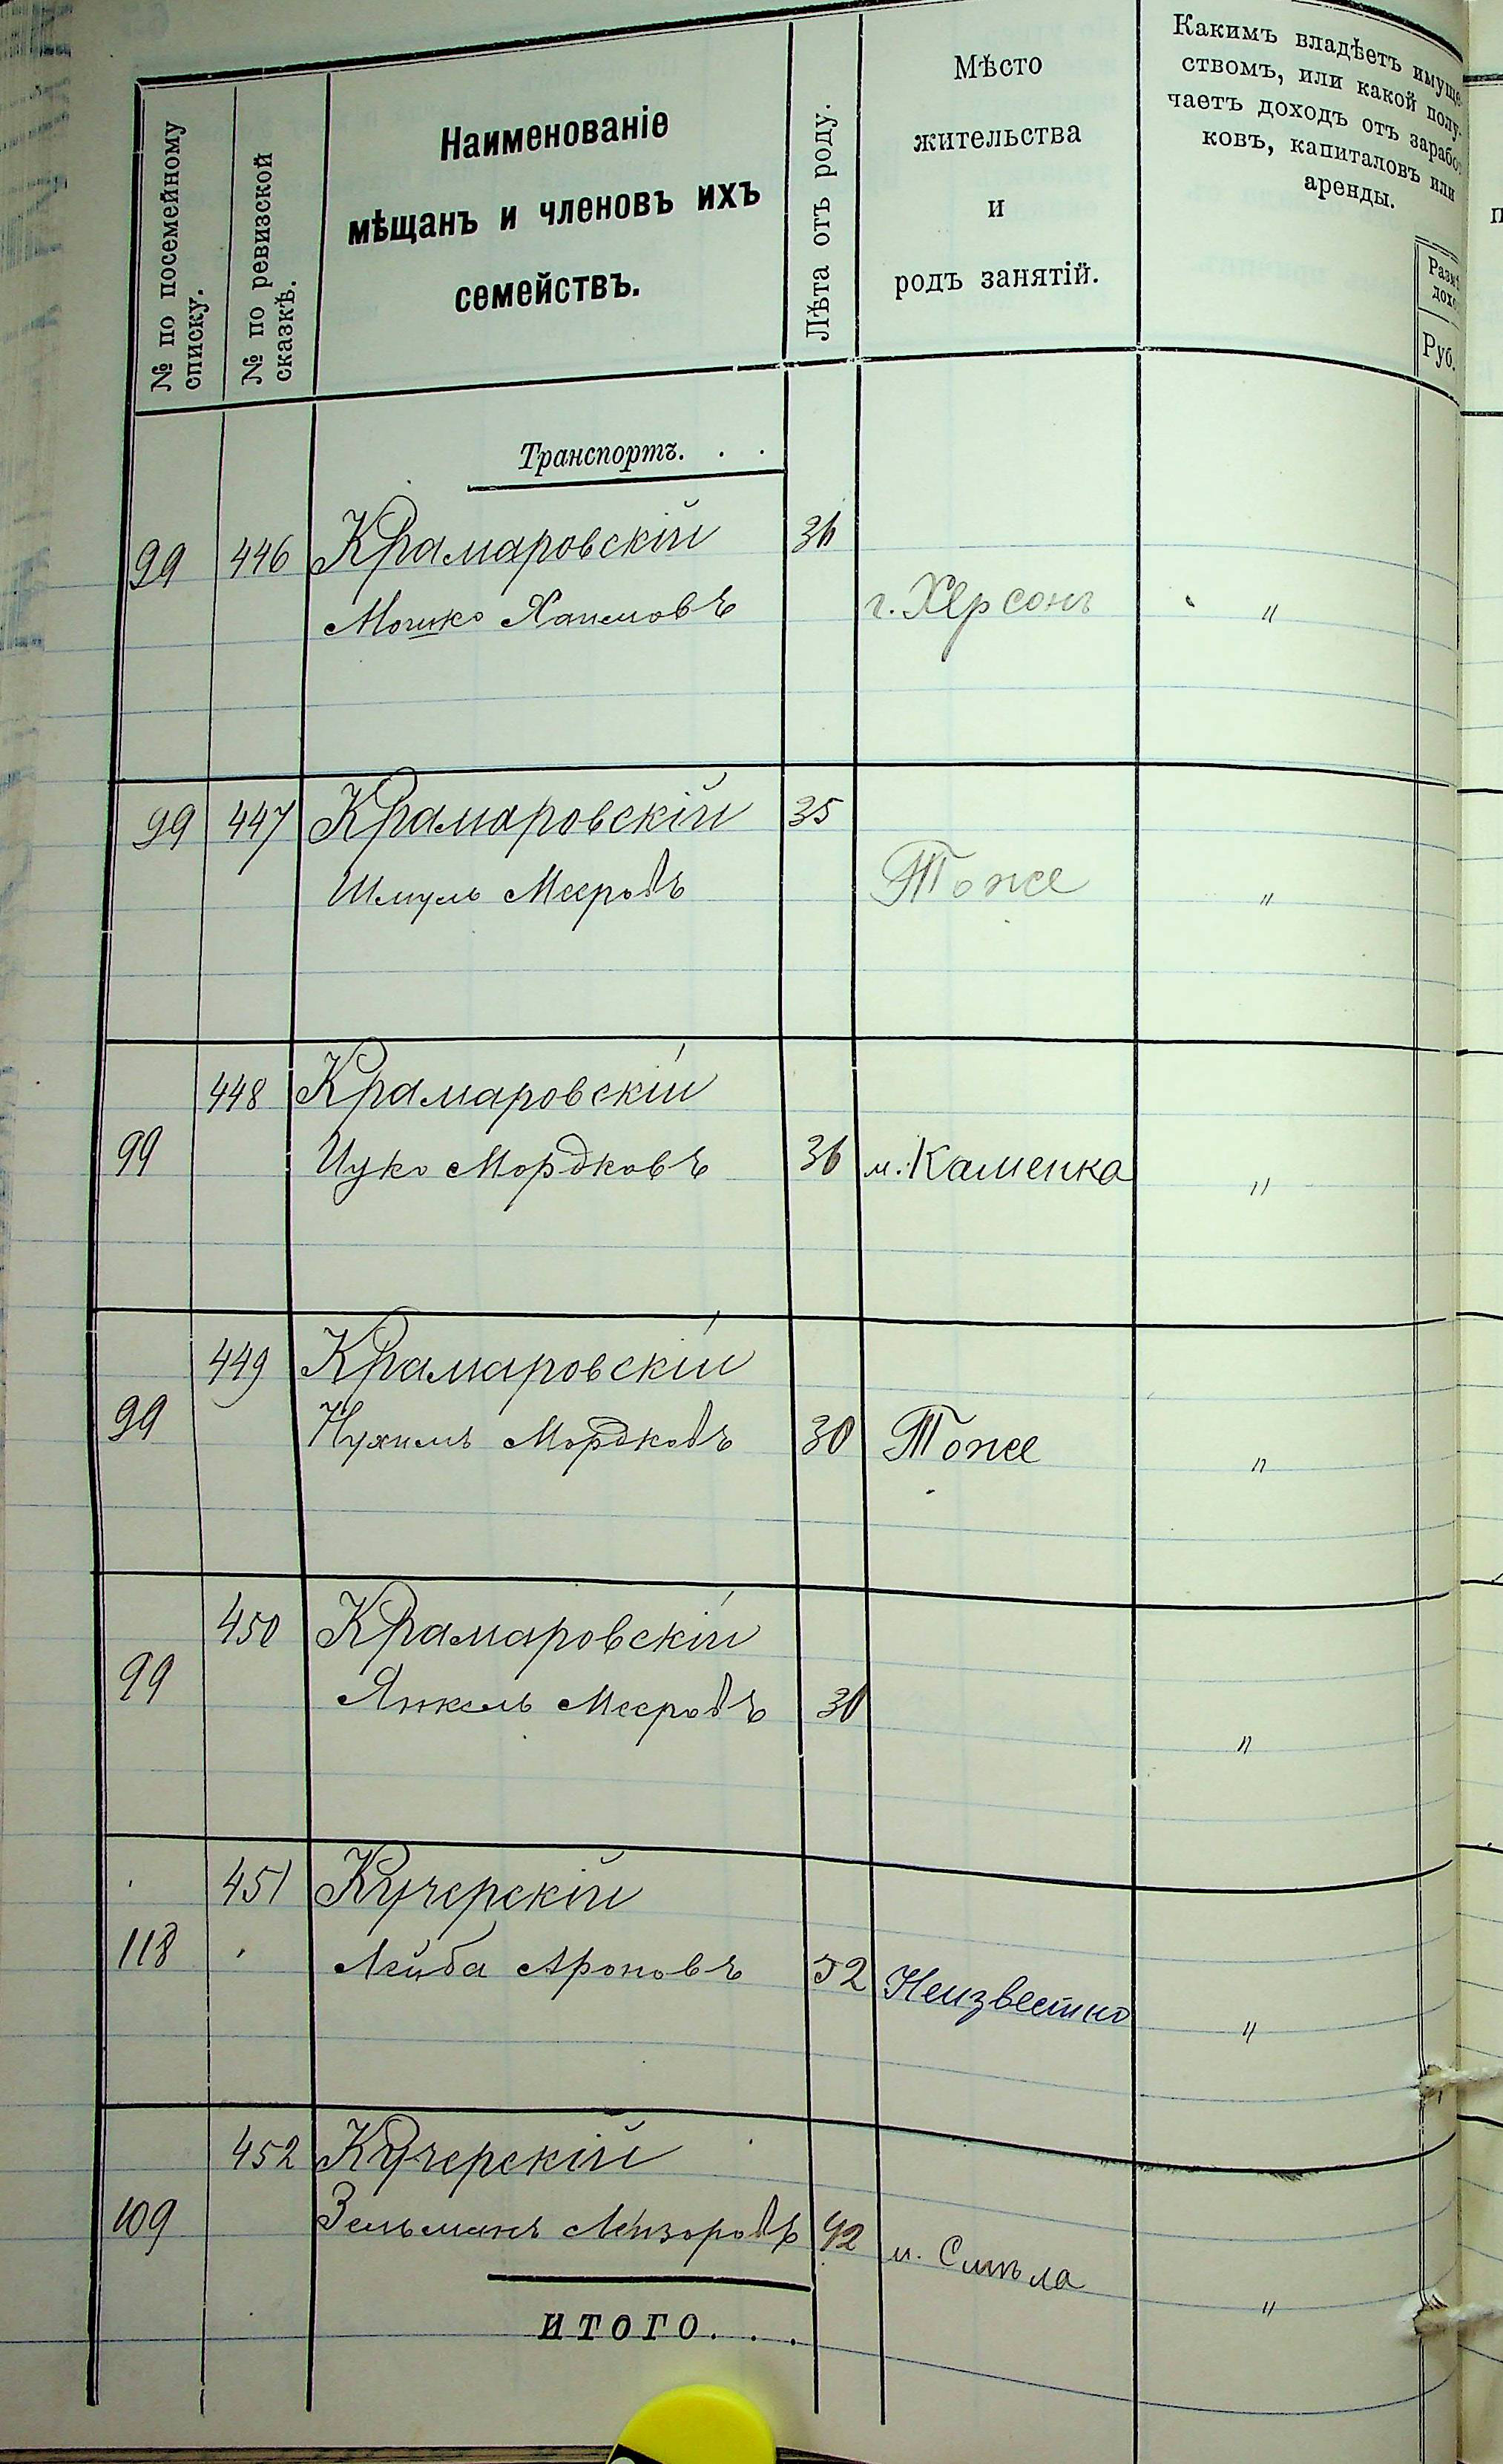 № по посемейному
списку.
№ по ревизской
сказкѣ.
Наименованіе
мѣщанъ и членовъ ихъ
семействъ.
Лѣта отъ роду.
Мѣсто
жительства
и
родъ занятій.
Какимъ владѣетъ имуще
ствомъ, или какой полу-
чаетъ доходъ отъ зарабо
ковъ, капиталовъ или
аренды.
Руб.
Транспортъ. . .
99 446 Крамаровскій 36
Мошко Хаимовъ г. Херсонъ "
99 447 Крамаровскій 35
Шмуль Мееровъ Тоже "
448 Крамаровскій
99 Ицко Мордковъ 36 м. Каменка "
449 Крамаровскій
99 Нухимъ Мордковъ 30 Тоже "
450 Крамаровскій
99 Янкель Мееровъ 30 "
451 Кучерскій
118 Лейба Ароновъ 52 Неизвестно "
452 Кучерскій
109 Зельманъ Лейзоровъ 42 м. Смѣла "
ИТОГО. . .